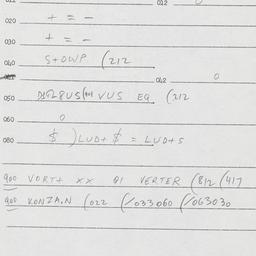 012
020 + = -
030 + = -
040 S+OWP (212
042 0
050 VUS EQ (212
060 0
080 $ )LUD+ $ = LUD+S
900 VORT+ XX QI VERTER (812 (417
900 KONZAN (022 (/033060 (/063030